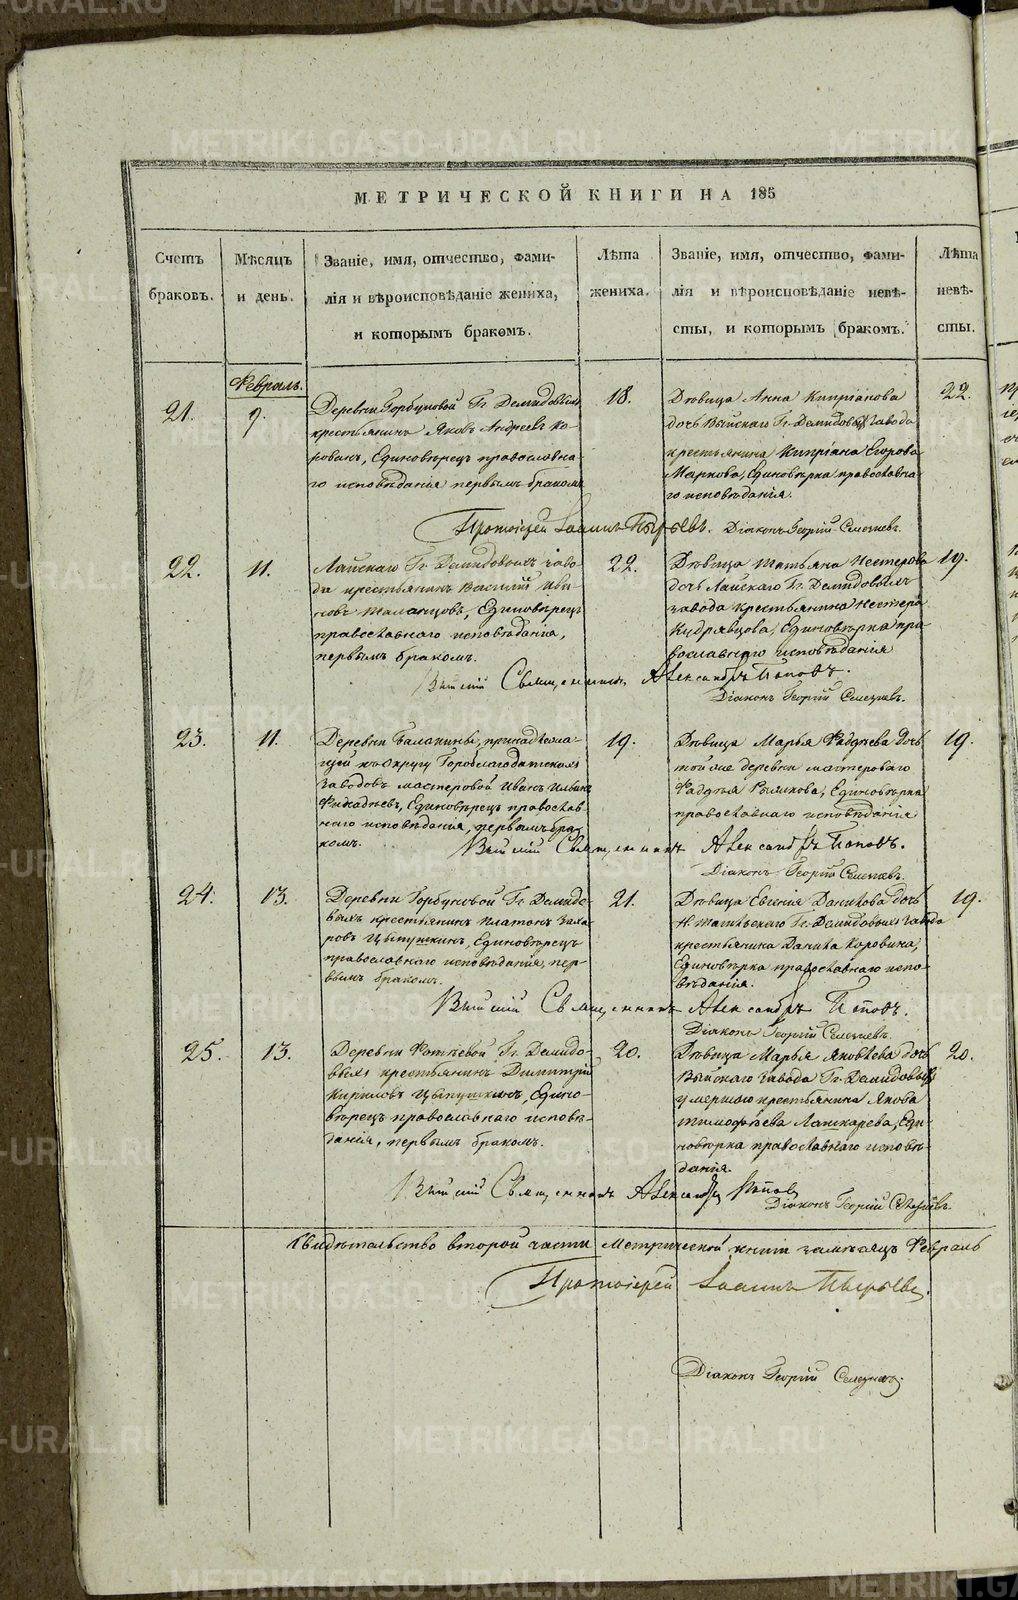 МЕТРИЧЕСКОЙ КНИГИ НА 185
Счетъ браковъ.
Мѣсяцъ и день.
Званіе, имя, отчество, фами-
лія и вѣроисповѣданіе жениха,
и которымъ бракомъ.
Лѣта жениха.
Званіе, имя, отчество, фами-
лія и вѣроисповѣданіе невѣ-
сты, и которымъ бракомъ.
Лѣта невѣ-
сты.
Февраль.
21.
9.
Деревни Горбуновой Гг. Демидовыхъ
крестьянинъ Яковъ Андреевъ Ко-
ровинъ, Единовѣрецъ православна-
го исповѣданія первымъ бракомъ
18.
Дѣвица Анна Кипріанова
дочь Выйскаго Гг. Демидовыхъ завода
крестьянина Кипріана Егорова
Маркова, Единовѣрка православна-
го исповѣданія.
22.
Протоіерей Іоаннъ Пырьевъ. Діаконъ Георгій Селезневъ.
22.
11.
Лайскаго Гг. Демидовыхъ заво-
да крестьянинъ Василій Ива-
новъ Таланцовъ, Единовѣрецъ
православнаго исповѣданія,
первымъ бракомъ.
22.
Дѣвица Татьяна Нестерова
дочь Лайскаго Гг. Демидовыхъ
завода крестьянина Нестера
Кудрявцова, Единовѣрка пра-
вославнаго исповѣданія
19.
Выйскій Священникъ Александръ Поповъ.
Діаконъ Георгій Селезневъ.
23.
11.
Деревни Балакины, принадлежа-
щей къ округу Гороблагодатскихъ
заводовъ мастеровой Иванъ Ильинъ
Единовѣрецъ православ-
наго исповѣданія, первымъ бра-
комъ.
19.
Дѣвица Марья Фадѣева дочь
той же деревни мастероваго
Фадѣя Единовѣрка
православнаго исповѣданія
19.
Выйскій Священникъ Александръ Поповъ.
Діаконъ Георгій Селезневъ.
24.
13.
Деревни Горбуновой Гг. Демидо-
выхъ крестьянинъ Платонъ Заха-
ровъ Цыпушкинъ, Единовѣрецъ
православнаго исповѣданія, пер-
вымъ бракомъ.
21.
Дѣвица Евгенія Данилова дочь
Н. Тагильскаго Гг. Демидовыхъ завода
крестьянина Данила Коровина,
Единовѣрка православнаго испо-
вѣданія.
19.
Выйскій Священникъ Александръ Поповъ.
Діаконъ Георгій Селезневъ.
25.
13.
Деревни Фотѣевой Гг. Демидо-
выхъ крестьянинъ Димитрій
Кириловъ Цыпушкинъ, Едино-
вѣрецъ православнаго исповѣ-
данія, первымъ бракомъ.
20.
Дѣвица Марья Яковлева дочь
Выйскаго завода Гг. Демидовыхъ
умершаго крестьянина Якова
Тимофѣева Лашкарева, Еди-
новѣрка православнаго исповѣ-
данія.
20.
Выйскій Священникъ Александръ Поповъ
Діаконъ Георгій Селезневъ.
Свидѣтельство второй части Метрической книги за мѣсяцъ Февраль
Протоіерей Іоаннъ Пырьевъ.
Діаконъ Георгій Селезневъ.
METRIKI.GASO-URAL.RU